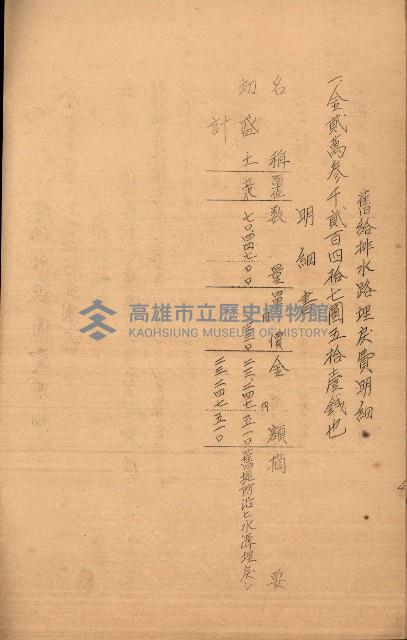 舊給排水路埋戻費明細
一、金貳萬參千貳百四拾七圓五拾壹錢也
明細書
名稱 單位 數量 單價 金額 摘要
切盛土 七〇四四七〇〇 二三二四七五一〇 舊堤防沿ヒ水溝埋戻シ
計 二三二四七五一〇
円
高雄市立歷史博物館
KAOHSIUNG MUSEUM OF HISTORY